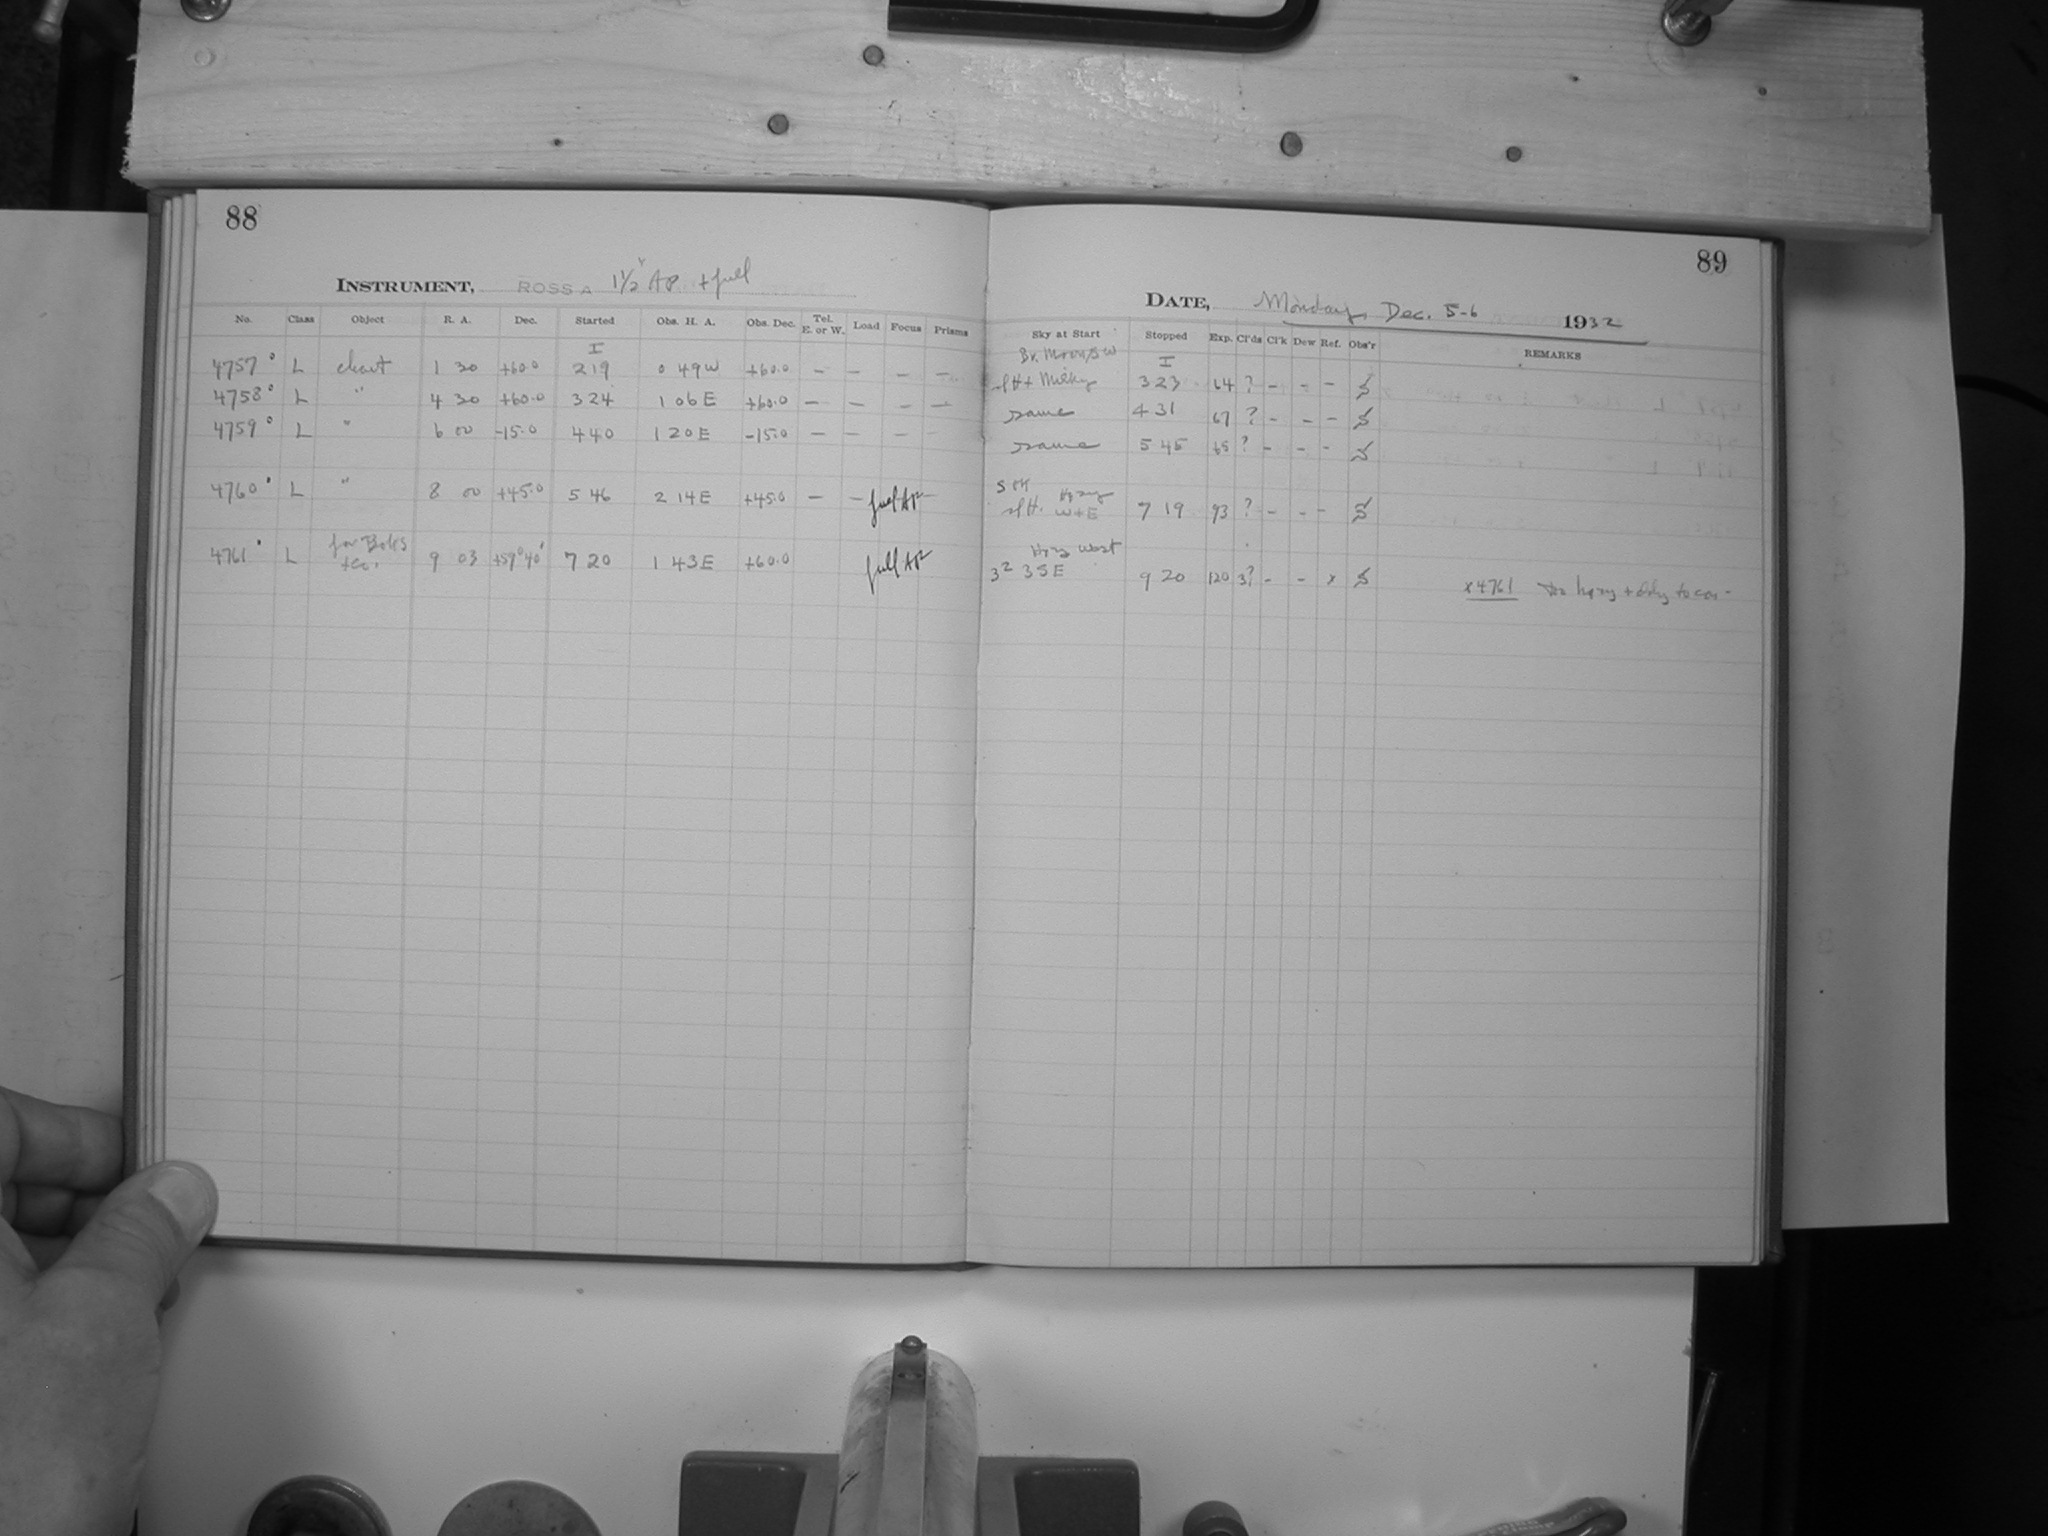 88
INSTRUMENT, ROSS A 1 1/2" AP + full
No. Class Object R. A. Dec. Started Obs. H. A. Obs. Dec. Tel. E. or W. Load Focus Prisms
I
4757° L chart 1 30 +60.0 2 19 0 49 W +60.0 — — — —
4758° L " 4 30 +60.0 3 24 1 06 E +60.0 — — — —
4759° L " 6 00 -15.0 4 40 1 20 E -15.0 — — — —
4760° L " 8 00 +45.0 5 46 2 14 E +45.0 — — full Ap —
4761° L for Boks +Co. 9 03 +59°40' 7 20 1 43 E +60.0 full Ap
89
DATE, Monday, Dec. 5-6 1932
Sky at Start Stopped Exp. Cl'ds Cl'k Dew Ref. Obs'r REMARKS
Br. Moon SW I
Milky 3 23 64 ? - - -
same 4 31 67 ? - - -
same 5 45 65 ? - - -
Hazy
W + E 7 19 93 ? - - -
Hazy West
3² 35 E 9 20 120 3? - - x
x4761 hazy +